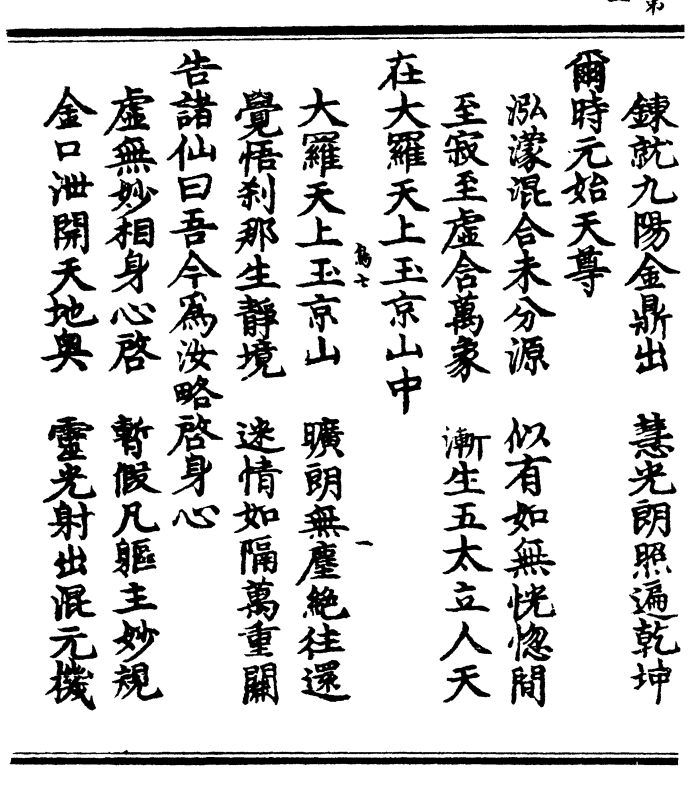 鍊就九陽金鼎出　慧光朗照遍乾坤
爾時元始天尊
泓濛混合未分源　似有如無恍惚間
至寂至虛含萬象　漸生五太立人天
在大羅天上玉京山中
大羅天上玉京山　曠朗無塵絕往還
覺悟刹那生靜境　迷情如隔萬重關
告諸仙曰吾今爲汝略啓身心
虛無妙相身心啓　暫假凡軀主妙規
金口泄開天地奧　靈光射出混元機